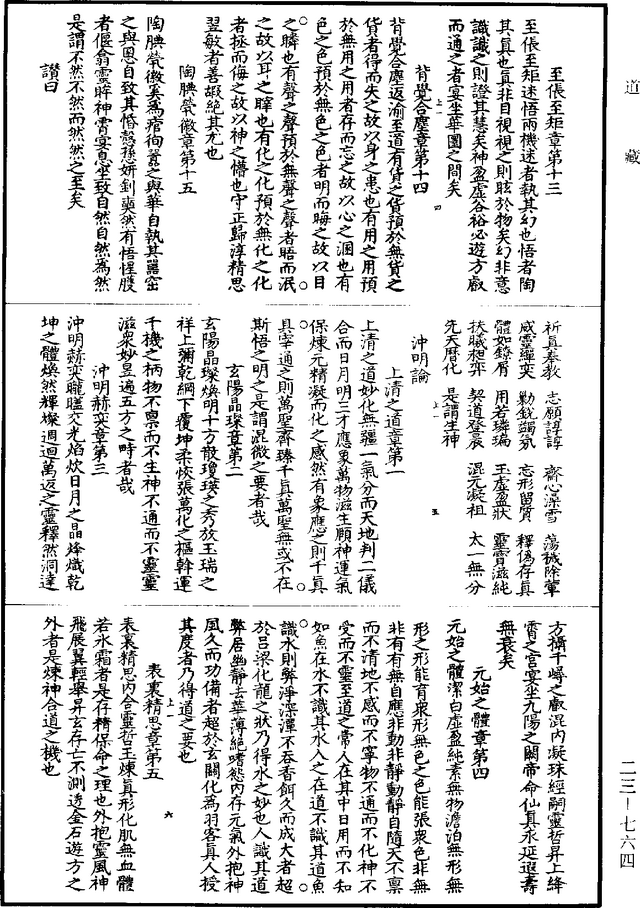 道藏
至倀至矩章第十三
至倀至矩迷悟兩機迷者執其幻也悟者陶
其真也真非目視視之則眩於物矣幻非意
識識之則證其慧矣神盈虛谷裕必遊方戲
而通之者宴坐華圃之間矣
背覺合塵章第十四
背覺合塵返渝至道有貨之貨預於無貨之
貨者得而失之故以身之患也有用之用預
於無用之用者存而忘之故以心之溷也有
色之色預於無色之色者明而晦之故以目
之瞵也有聲之聲預於無聲之聲者聒而泯
之故以耳之瞎也有化之化預於無化之化
者拯而侮之故以神之懵也守正歸淳精思
翌敏者善嘏絕其尤也
陶腆煢徽章第十五
陶腆煢徽奚為瘡徇瓷之與華自執其器窑
之與恩自致其惛慤蔉妍釗奭然有悟惺腹
者偃翁靈晬神霄宴息坐致自然自然焉然
是謂不然不然而然然之至矣
讚曰
祈真奉教　志願諄諄　齋心澡雪　蕩穢除葷
感靈躍奕　勤銳蠲氛　忘形留質　釋偽存真
體如鎔屑　用若璘瑞　玉虛盈狀　靈寶滋純
扶曦挹弈　契道登晨　混元凝祖　太一無分
先天曆化　是謂生神
沖明論
上清之道章第一
上清之道妙化無疆一氣分而天地判二儀
合而日月明三才應象萬物滋生願神運氣
保煉元精凝而化之感然有象應之則千真
具宰通之則萬聖齊臻千真萬聖無或不在
斯悟之明之是謂混微之要者哉
玄陽晶璨章第二
玄陽晶璨煥明十方散瓊瑛之秀放玉瑞之
祥上彌乾綱下覆坤柔恢張萬化之樞斡運
千機之柄物不禀而不生神不通而不靈靈
滋衆妙昱遍五方之時者哉
沖明赫奕章第三
沖明赫奕曨曕交光焰炊日月之晶烽熾乾
坤之體煥然輝燦週迴萬返之靈釋然洞達
方攝千嶂之戲混内凝珠經嗣靈哲昇上絳
霄之宮宴坐九陽之闕帝命仙真永延遐壽
無衰矣
元始之體章第四
元始之體潔白虛盈純素無物澹泊無形無
形之形能育衆形無色之色能張衆色非無
非有有無自應非動非靜動靜自隨天不禀
而不清地不感而不寧物不通而不化神不
受而不靈至道之常人在其中日用而不知
如魚在水不識其水人之在道不識其道魚
識水則弊淨深潭不吞香餌久而成大者超
於呂梁化龍之狀乃得水之妙也人識其道
弊居幽靜去華薄絕嗜慾内存元氣外抱神
風久而功備者超於玄關化為羽客真人授
其度者乃得道之要也
表裏精思章第五
表裏精思内合靈哲玉煉真形化肌無血體
若氷霜者是存精保命之理也外抱靈風神
飛展翼輕舉昇玄存亡不測透金石遊方之
外者是煉神合道之機也
上一　四
上一　五
上一　六
二三—七六四